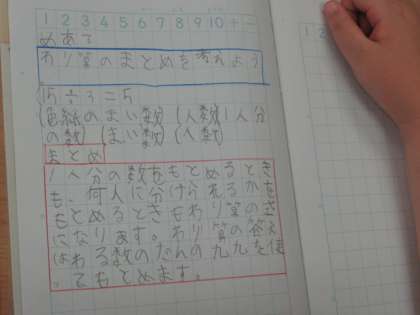 1 2 3 4 5 6 7 8 9 10 十 一
めあて
わり算のまとめを考えよう
15÷3=5
(色紙のまい数)(人数)1人分
の数)(まい数)(人数)
まとめ
1人分の数をもとめるとき
も、何人に分けられるかを
もとめるときもわり算の式
になります。わり算の答え
はわる数のだんの九九を使
ってもとめます。